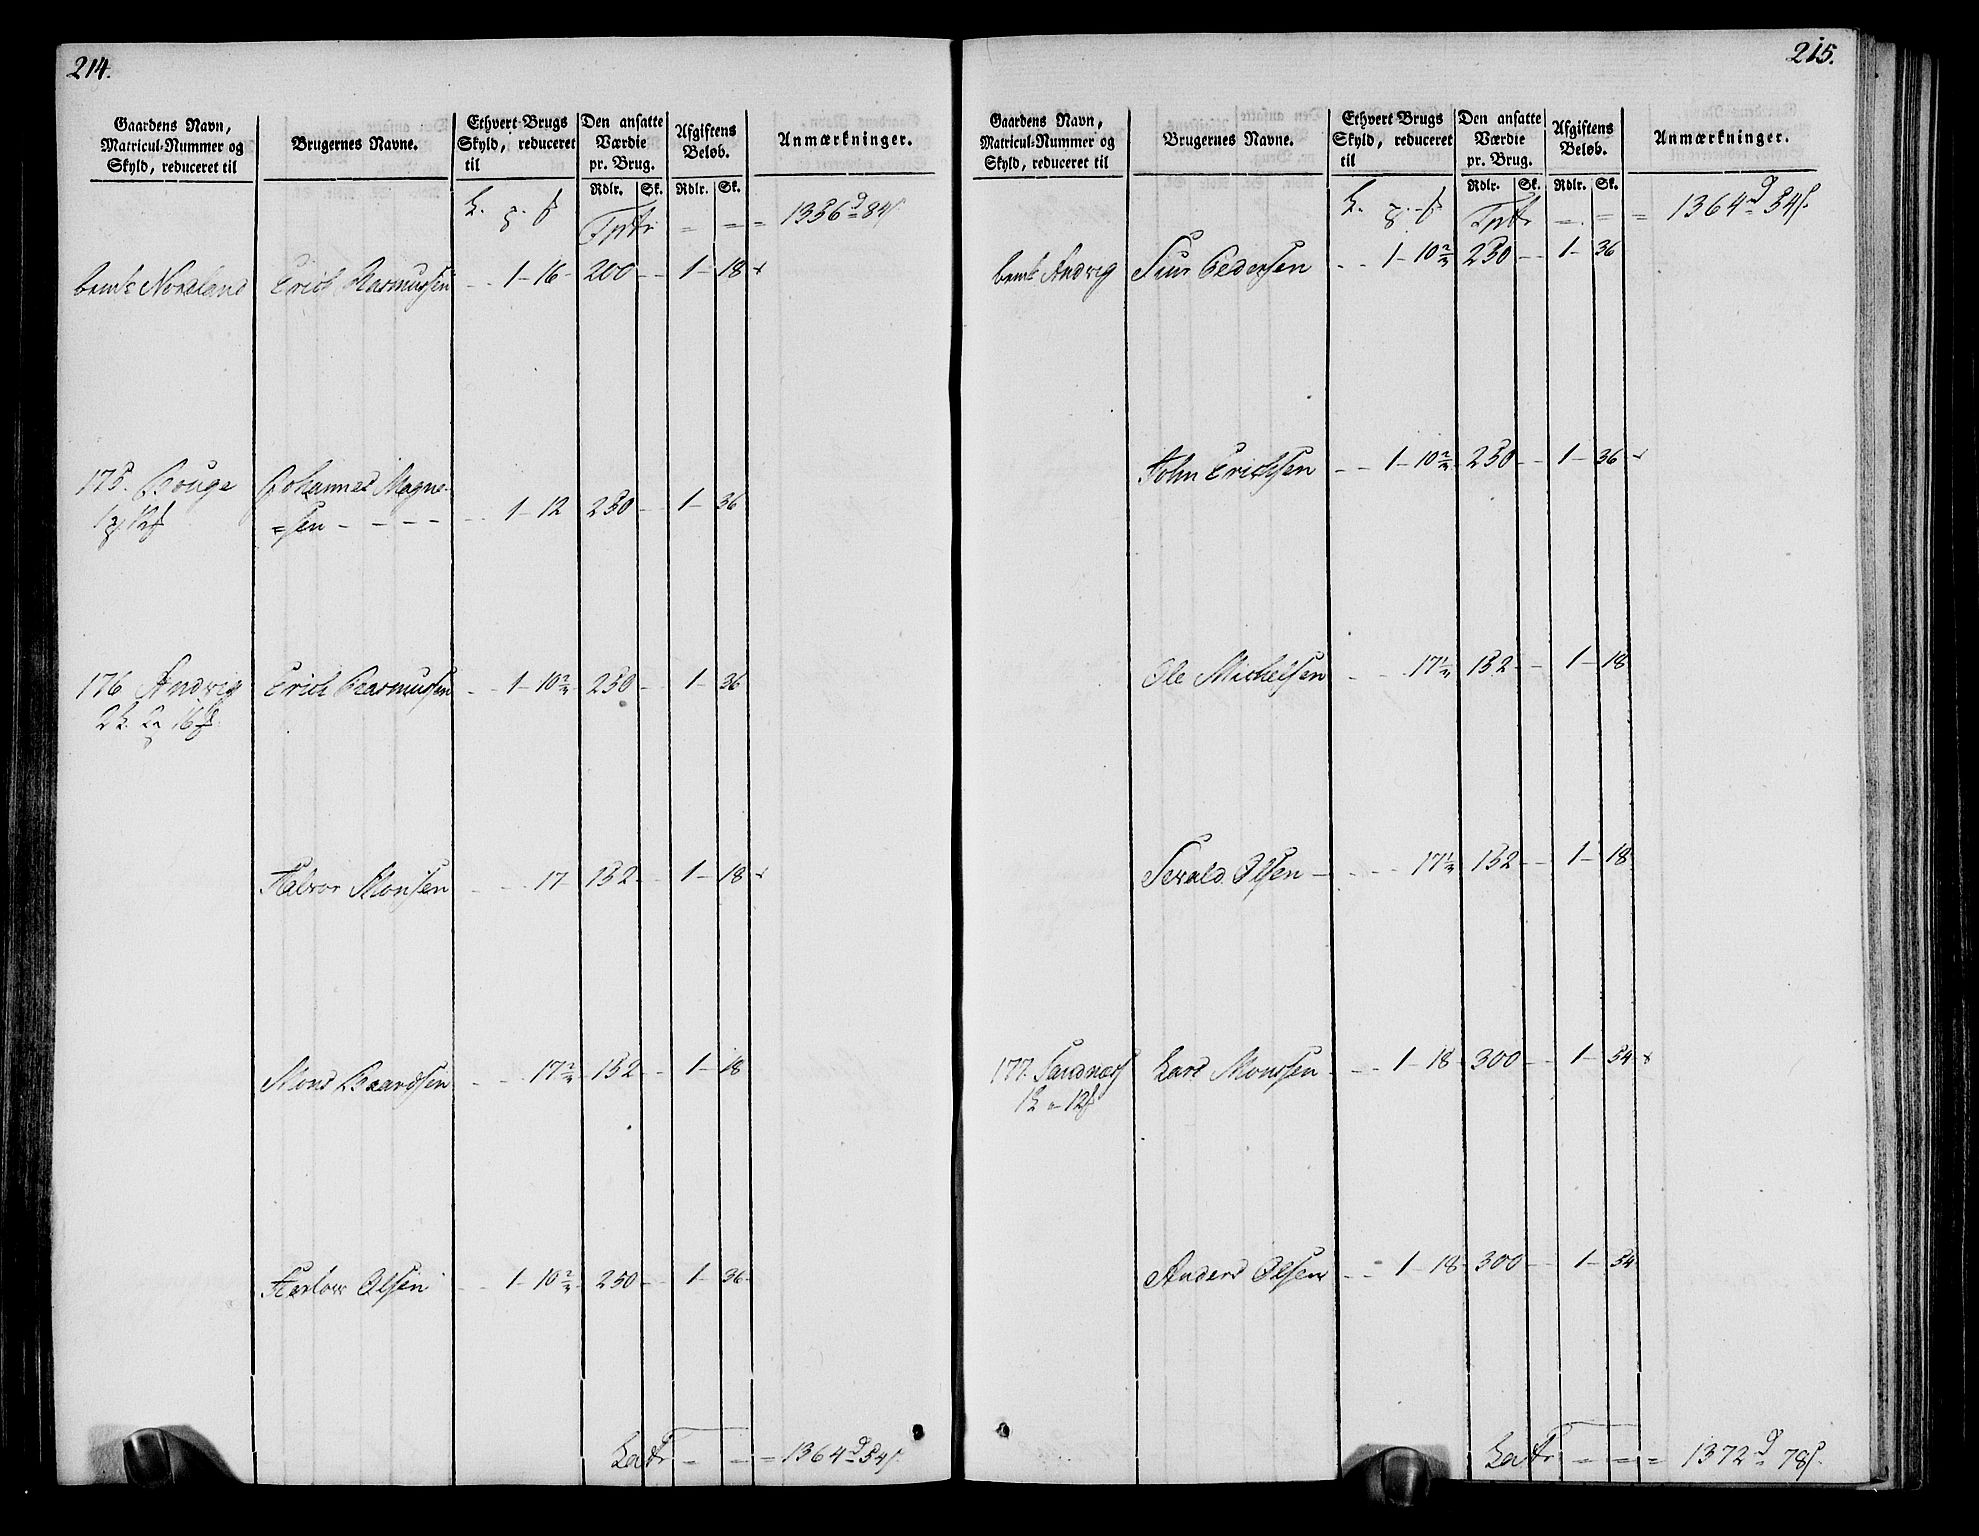 214.
Gaardens Navn, Matricul-Nummer og Skyld, reduceret til
Brugernes Navne.
Ethvert Brugs Skyld, reduceret til
Den ansatte Værdie pr. Brug.
Afgiftens Beløb.
Anmærkninger.
Rdlr. Sk. Rdlr. Sk.
Tptr = = = 1356 84
Nordland Erich Rasmussen - - 1 - 16 - 200 - - 1 - 18
175. Bouge Johannes Magne-
=sen - - - - - - 1 - 12 250 - - 1 - 36
176 Andvig Erich Rasmussen - - 1 - 10 2/4 250 - - 1 - 36
Halvor Monsen - - - 17 - 152 - - 1 - 18
Mons Baardsen - - - 17 2/4 152 - - 1 - 18
Olsen - - 1 - 10 2/4 250 - - 1 - 36
Latr = = = 1364 54
215.
Gaardens Navn, Matricul-Nummer og Skyld, reduceret til
Brugernes Navne.
Ethvert Brugs Skyld, reduceret til
Den ansatte Værdie pr. Brug.
Afgiftens Beløb.
Anmærkninger.
Rdlr. Sk. Rdlr. Sk.
Tptr = = = 1364 54
Andvig Siur Pedersen - - 1 - 10 2/4 250 - - 1 - 36
John Erichsen - - 1 - 10 2/4 250 - - 1 - 36
Ole Michelsen - - - 17 1/4 152 - - 1 - 18
Sevald Olsen - - - - 17 1/4 152 - - 1 - 18
177. Sandnæs Lars Monsen - - - 1 - 18 - 300 - - 1 - 54
Anders Olsen - - 1 - 18 - 300 - - 1 - 54
Latr = = = 1372 78